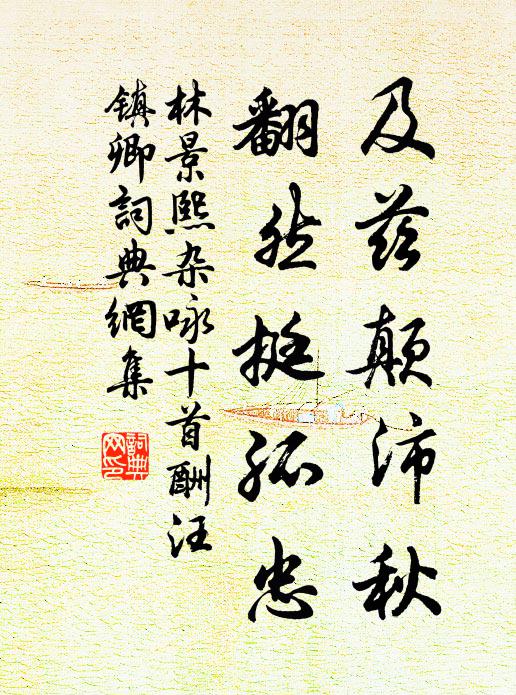 及兹颠沛秋
翻然挺孤忠
林景熙杂咏十首酬汪
镇卿詞典網集
詞典
网印